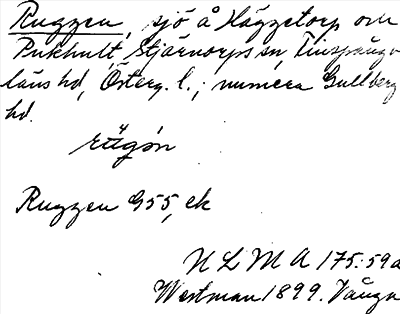 Ruggen, sjö å Häggetorp och
Pukhult, Stjärnorps sn, Finspånga
läns hd, Österg. l.; numera Gullberg
hd.
rŭgøn
Ruggen G55, ek
N L M A 175:59a
Westman 1899. Vånga